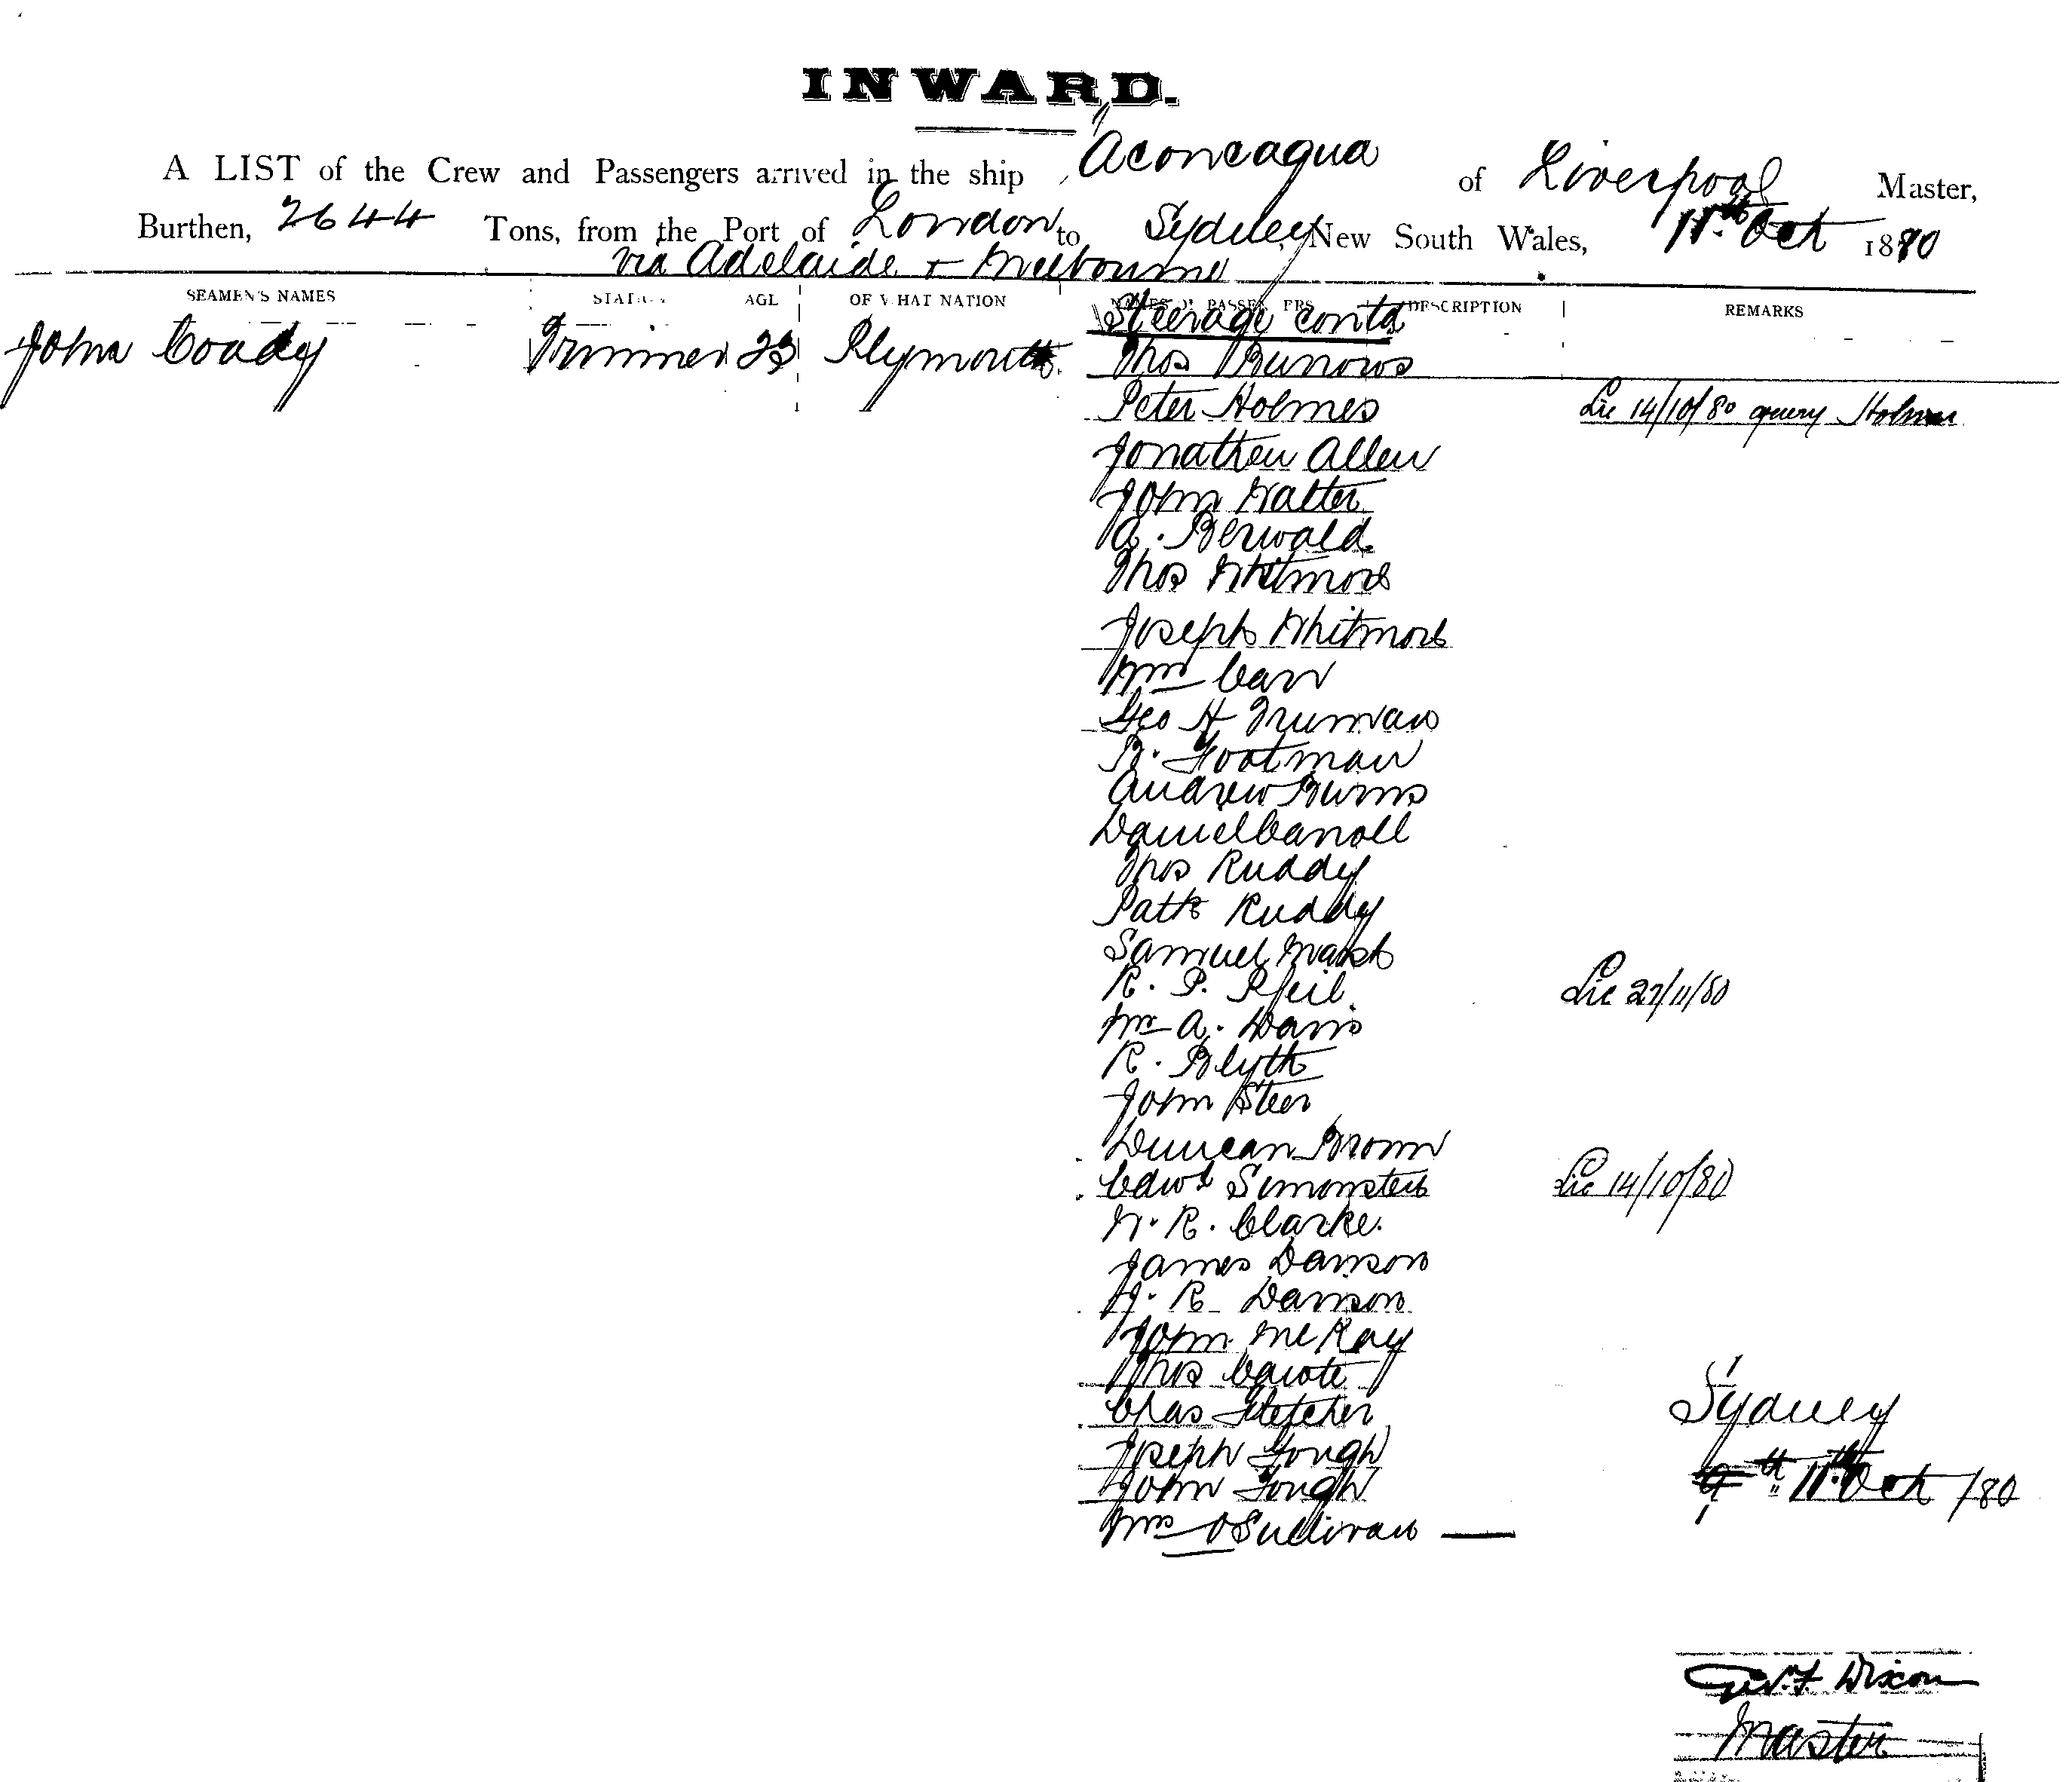 INWARD.
A LIST of the Crew and Passengers arrived in the ship Aconcagua of Liverpool Master,
Burthen, 2644 Tons, from the Port of London to Sydney, New South Wales, 11th Oct 1880
via Adelaide & Melbourne
SEAMEN'S NAMES STATION AGE OF WHAT NATION NAMES OF PASSENGERS DESCRIPTION REMARKS
Steerage contd
John Coady Trimmer 23 Plymouth Thos Burrows
Peter Holmes Lic 14/10/80 query Holmes
Jonathan Allen
John Walter
A. Berwald
Thos Whitmore
Joseph Whitmore
Wm Carr
Geo H Truman
B. Footman
Andrew Burns
Daniel Carroll
Thos Ruddy
Patk Ruddy
Samuel Marsh
R. P. Pfeil Lic 27/11/80
Wm A. Davis
R. Blyth
John Steer
Duncan Brown
Edwd Simonsten Lic 14/10/80
W. R. Clarke.
James Dawson
H. R. Dawson
John McKay
Thos
Chas Fletcher
Joseph Gough
John Gough
Mrs O'Sullivan
Sydney
9th 11th Oct /80
Geo. F. Dixon
Master